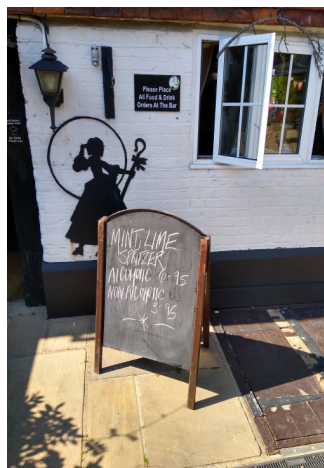 Please Place
All Food & Drink
Orders At The Bar
MINT LIME
SPRITZER
ALCOHOLIC 6.95
NON ALCOHOLIC
3.95